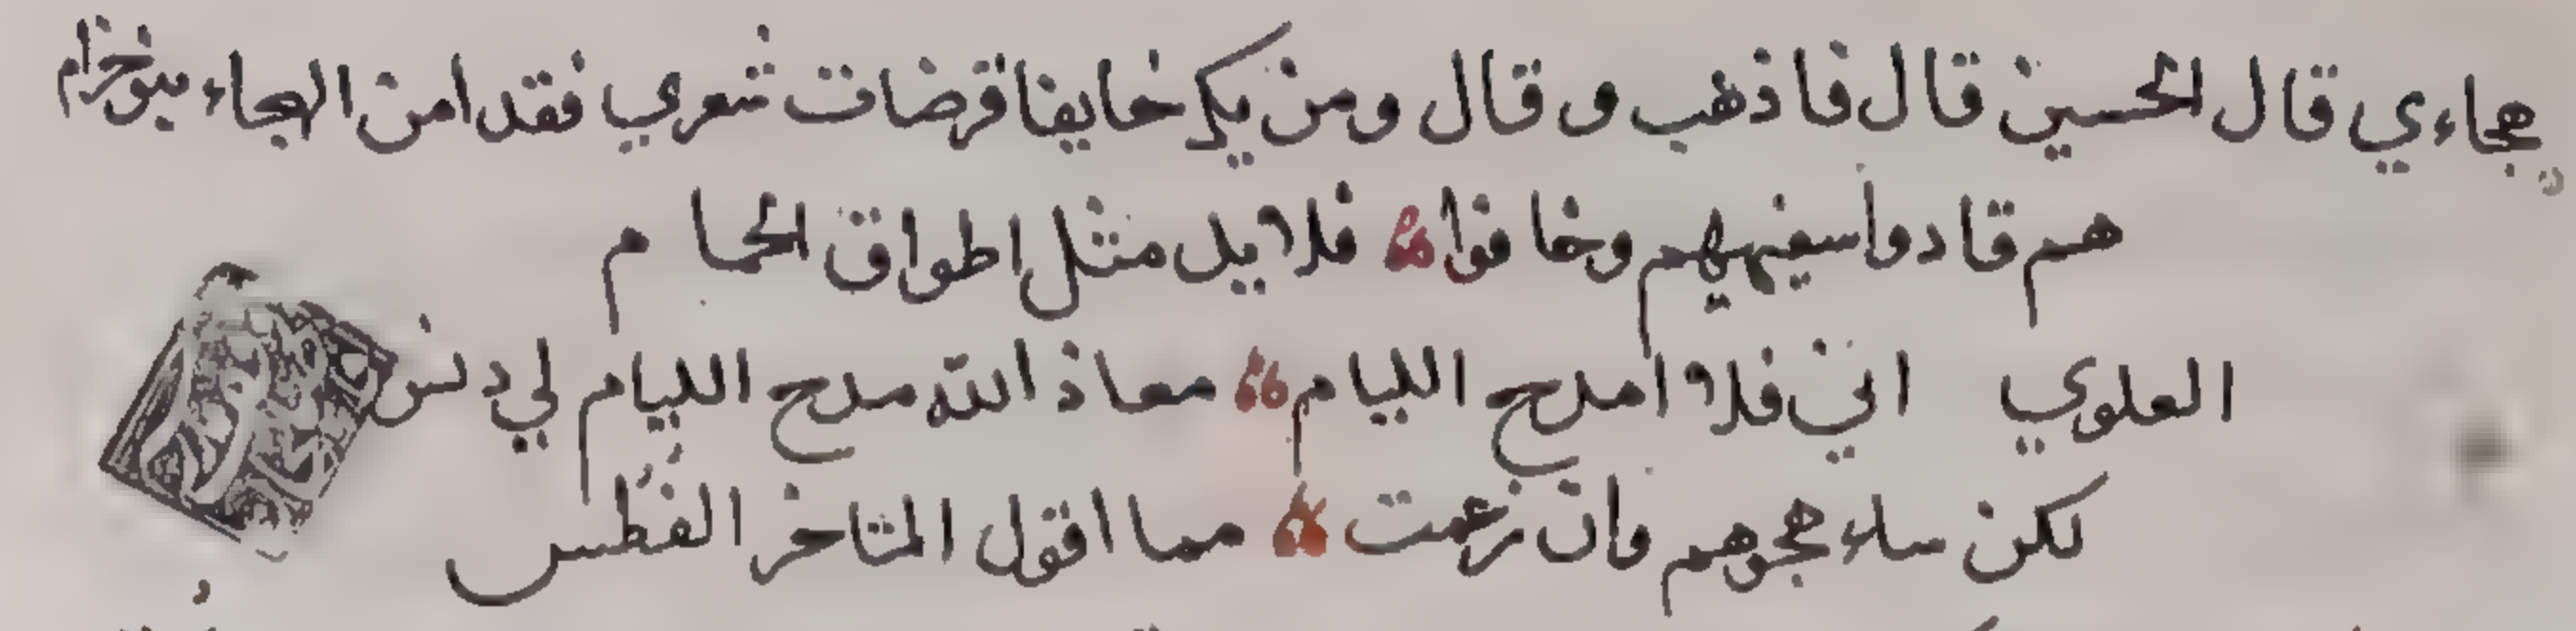 هجاءي قال الحسين قال فاذهب وقال ومن يك خايفا قرضات شعري فقد امن الهجاء بنو خزام
هم قادوا سفيههم وخافوا فلايد مثل اطواق الحمام
العلوي اني فلا امدح الليام معاذ الله مدح الليام لي دنس
لكن ساءهجوهم وان زعمت مما اقول المتاخر الفطس